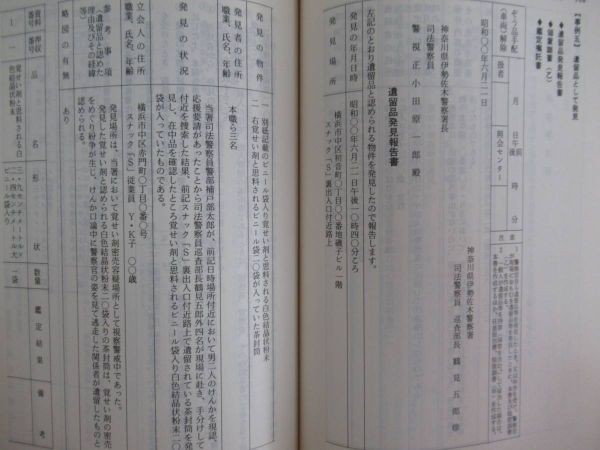 【事例五】　遺留品として発見
◆遺留品発見報告書
◆領置調書（乙）
◆鑑定嘱託書
ぞう品手配
（有・無）解除
月　日　午前後　時　分
扱者
照会センター
昭和〇〇年六月二一日
神奈川県伊勢佐木警察署長
司法警察員
警視正　小田原一郎　殿
神奈川県伊勢佐木警察署
司法警察員　巡査部長　鶴見五郎㊞
遺留品発見報告書
左記のとおり遺留品と認められる物件を発見したので報告します。
発見の年月日時
昭和〇〇年六月二一日午後一〇時四〇分ころ
発見場所
横浜市中区初音町〇丁目〇〇番地磯子ビル一階
スナック「S」裏出入口付近路上
発見の物件
一　別紙記載のビニール袋入り覚せい剤と思料される白色結晶状粉末
二　右覚せい剤と思料されるビニール袋二〇袋が入っていた茶封筒
発見者の住所
職業、氏名、年齢
本職ら三名
発見の状況
当署司法警察員警部補戸部太郎が、前記日時場所付近において男二人のけんかを現認、
応援要請があったことから司法警察員巡査部長鶴見五郎外四名が現場に赴き、手分けして
付近を捜索した結果、前記スナック「S」裏出入口付近路上で遺留されている茶封筒を発
見し、在中品を確認したところ覚せい剤と思料されるビニール袋入り白色結晶状粉末二〇
袋が入っていたものである。
立会人の住所
職業、氏名、年齢
横浜市中区赤門町〇丁目〇番〇号
スナック「S」従業員　Y・K子　〇〇歳
参考事項
（遺留品と認めた
理由及びその経緯等）
発見場所は、当署において覚せい剤密売容疑場所として視察警戒中であった。
発見した覚せい剤と認められる白色結晶状粉末二〇袋入りの茶封筒は、覚せい剤の密売
をめぐり紛争が生じ、けんか口論中に警察官の姿を見て逃走した関係者が遺留したものと
認められる。
略図の有無
あり
資料番号
押収番号
品名
形状
数量
鑑定結果
備考
1
1
覚せい剤と思料される白
色結晶状粉末
ビニール袋入り
一袋